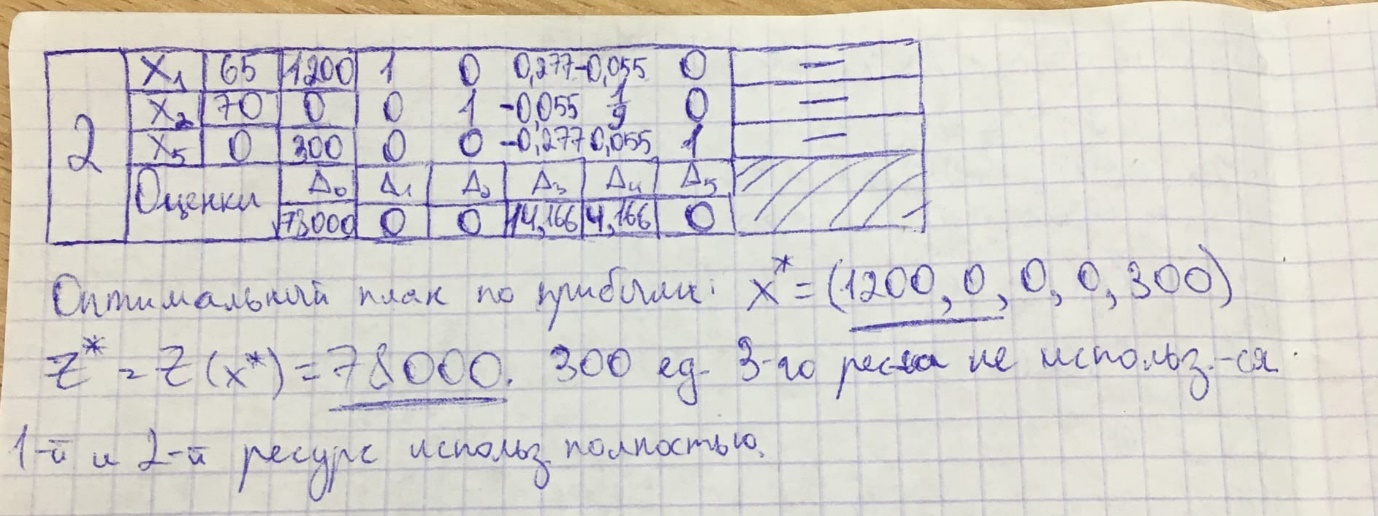 2 X₁ 65 1200 1 0 0,277 -0,055 0 —
X₂ 70 0 0 1 -0,055 1/9 0 —
X₅ 0 300 0 0 -0,277 0,055 1 —
Оценки Δ₀ Δ₁ Δ₂ Δ₃ Δ₄ Δ₅
78000 0 0 14,166 4,166 0
Оптимальный план по прибыли: X* = (1200, 0, 0, 0, 300)
Z* = Z(x*) = 78000. 300 ед. 3-го рес-са не использ-ся.
1-й и 2-й ресурс использ полностью.